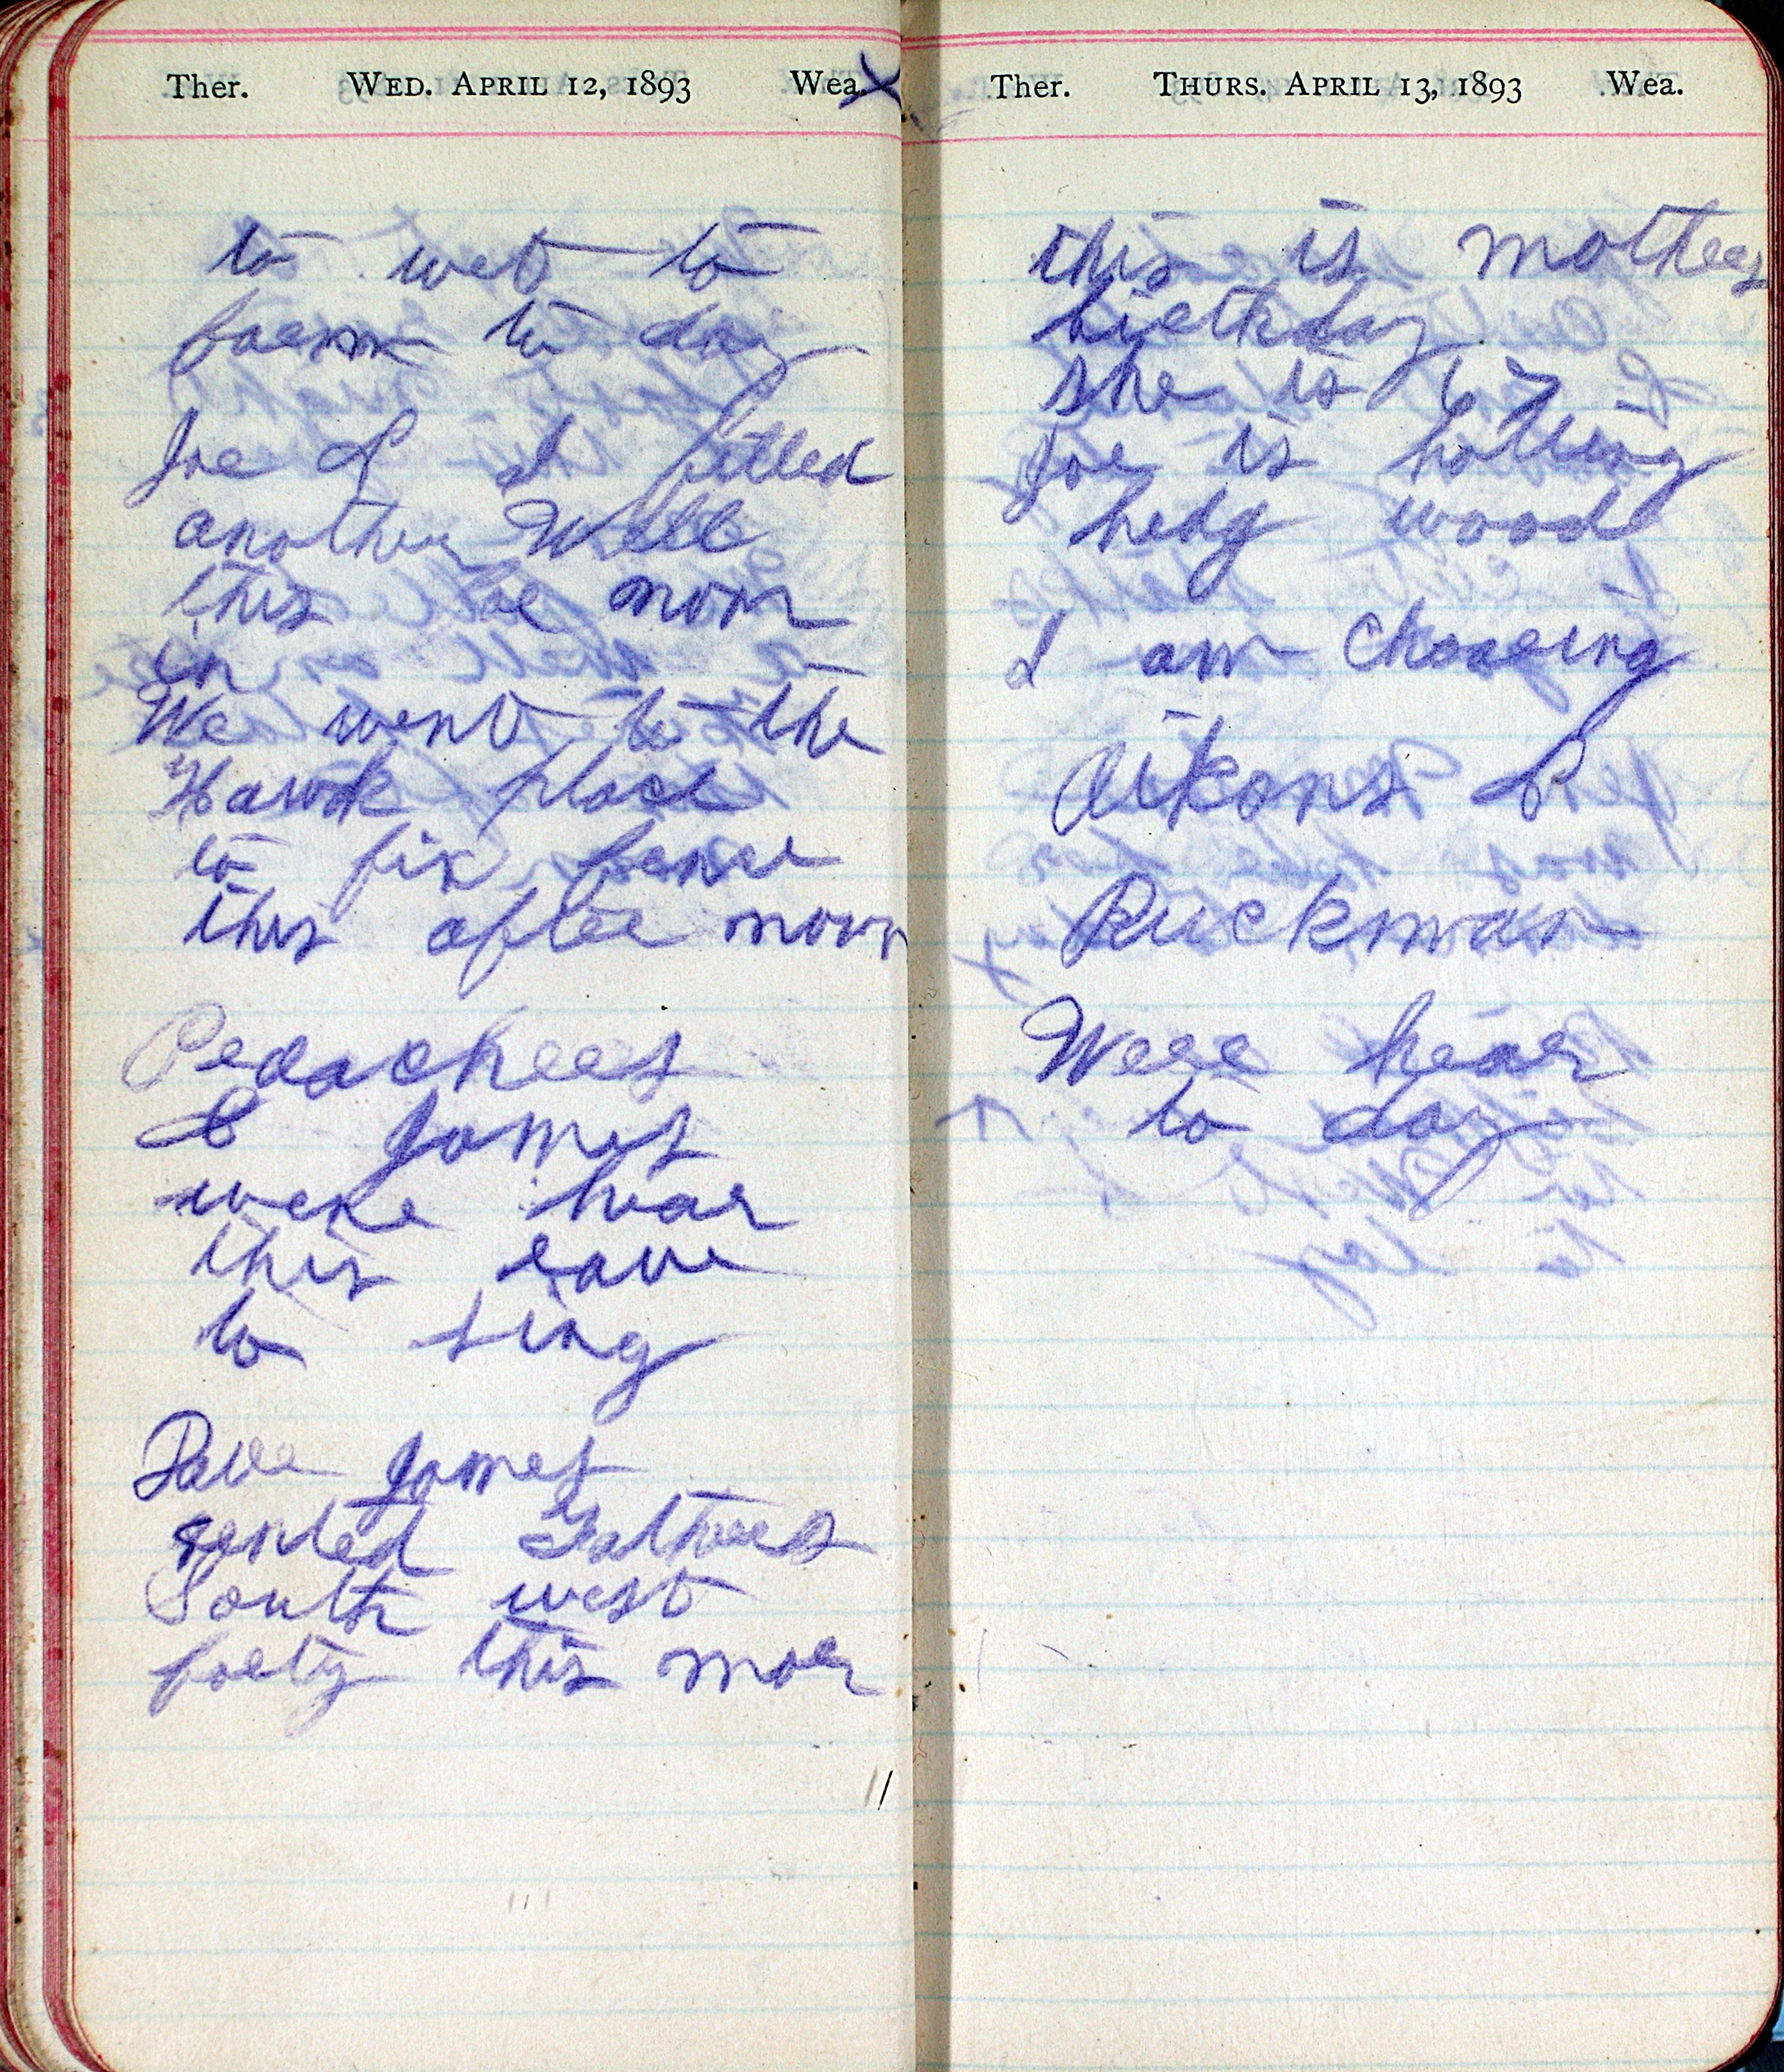 Ther. WED. APRIL 12, 1893 Wea.
to wet to
farm to day
Joe & I filled
another Well
this foe noon
in
We went to the
Hawk place
to fix fence
this after noon
Pedachers
& James
were hear
this eave
to sing
Dave James
rented Fathers
South west
forty this mor
Ther. THURS. APRIL 13, 1893 Wea.
this is mothers
birthday
she is 67
Joe is holling
hedg wood
I am choaping
Aikons &
Ruckman
Were hear
to day